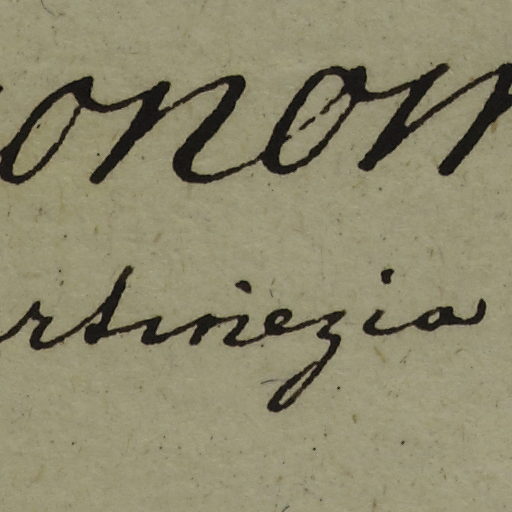 onom
rtinezia